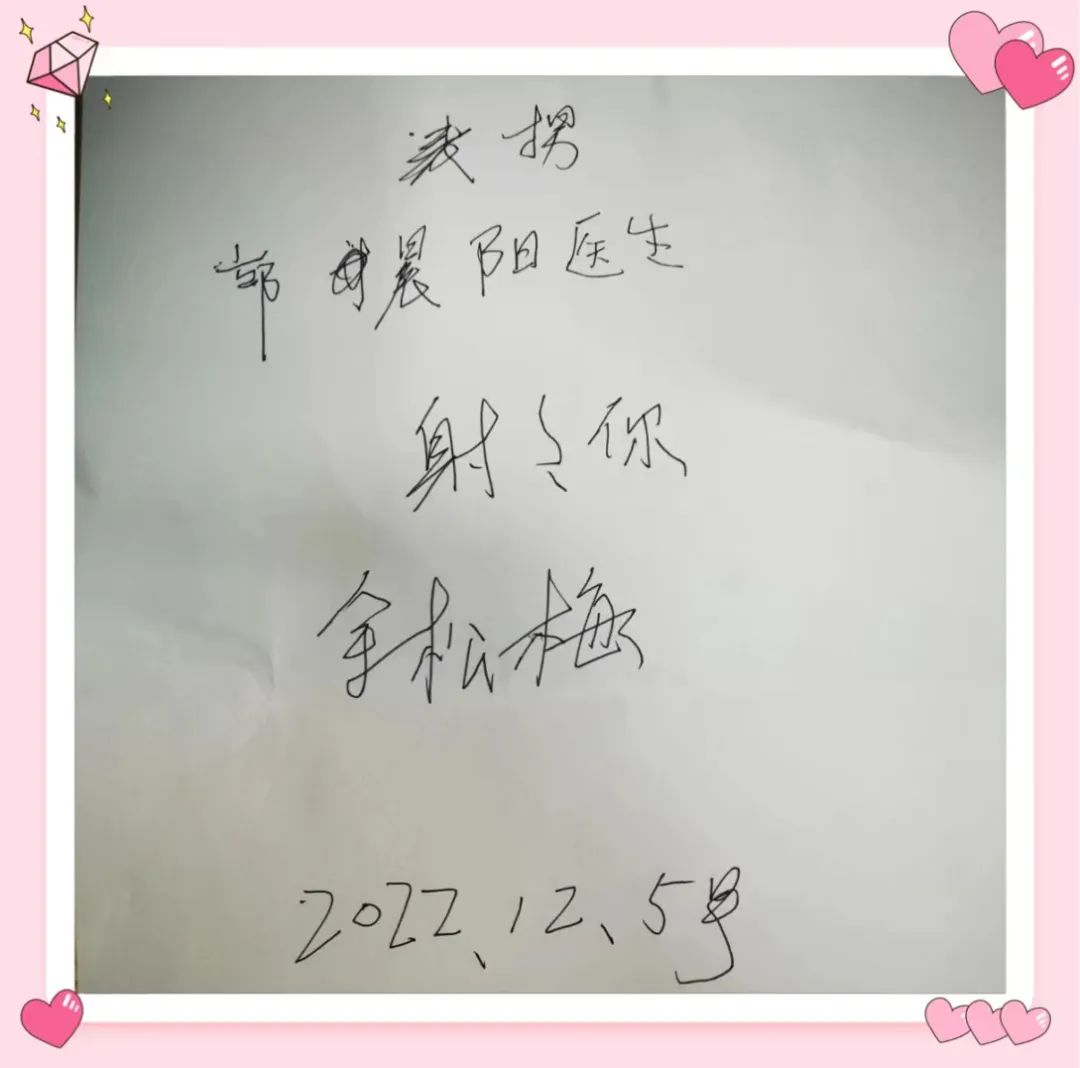 我拐
郭晨阳医生
射、你
余松梅
2022、12、5号